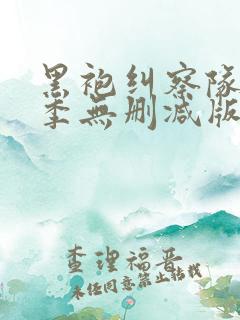 黑袍纠察队
季無删减版
查理福晋
未任同意禁止转载